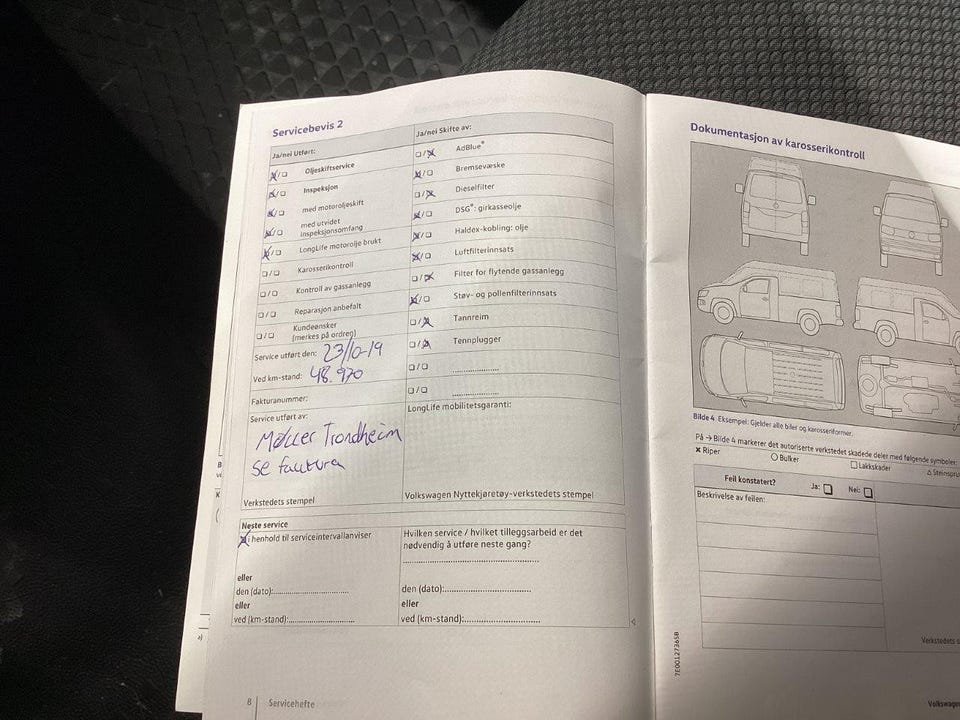 Servicebevis 2
Ja/nei Utført:
Oljeskiftservice
Inspeksjon
med motoroljeskift
med utvidet
inspeksjonsomfang
LongLife motorolje brukt
Karosserikontroll
Kontroll av gassanlegg
Reparasjon anbefalt
Kundeønsker
(merkes på ordren)
Service utført den: 23/10-19
Ved km-stand: 48.970
Fakturanummer:
Service utført av:
Møller Trondheim
se factura
Verkstedets stempel
Ja/nei Skifte av:
AdBlue®
Bremsevæske
Dieselfilter
DSG®: girkasseolje
Haldex-kobling: olje
Luftfilterinnsats
Filter for flytende gassanlegg
Støv- og pollenfilterinnsats
Tannreim
Tennplugger
LongLife mobilitetsgaranti:
Volkswagen Nyttekjøretøy-verkstedets stempel
Neste service
i henhold til serviceintervallanviser
eller
den (dato):
eller
ved (km-stand):
Hvilken service / hvilket tilleggsarbeid er det
nødvendig å utføre neste gang?
den (dato):
eller
ved (km-stand):
8 Servicehefte
Dokumentasjon av karosserikontroll
Bilde 4 Eksempel: Gjelder alle biler og karosseriformer.
På → Bilde 4 markerer det autoriserte verkstedet skadede deler med følgende symboler:
× Riper
○ Bulker
□ Lakkskader
△ Steinspru
Feil konstatert? Ja: Nei:
Beskrivelse av feilen:
Verkstedets s
7E0012736SB
Volkswagen
a)